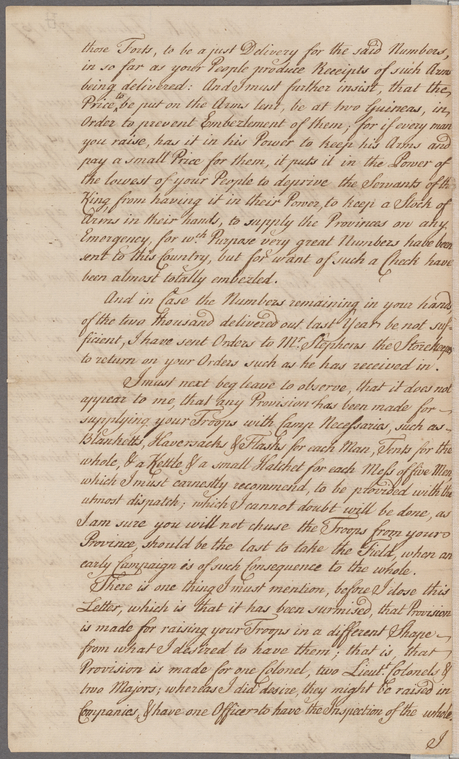 those Forts, to be a just Delivery for the said Numbers,
in so far as your People produce Receipts of such Arms
being delivered: And I must further insist, that the
Price to be put on the Arms lent, be at two Guineas, in
Order to prevent Embezlement of them; for if every man
you raise, has it in his Power to keep his Arms and
pay a small Price for them, it puts it in the Power of
the lowest of your People to deprive the Servants of the
King from having it in their Power, to keep a Stock of
Arms in their hands, to supply the Provinces on any
Emergency, for wch. Purpose very great Numbers have been
sent to this Country, but for want of such a Check have
been almost totally embezled.
And in Case the Numbers remaining in your hands
of the two thousand delivered out last Year, be not suf-
ficient, I have sent Orders to Mr. Stephens the Storekeeper
to return on your Orders such as he has received in.
I must next beg leave to observe, that it does not
appear to me, that any Provision has been made for
supplying your Troops with Camp Necessarias, such as
Blanketts, Haversacks & Flasks for each Man, Tents for the
whole, & a Kettle & a small Hatchet for each Mess of five Men,
which I must earnestly recommend, to be provided with the
utmost dispatch; which I cannot doubt will be done, as
I am sure you will not chuse the Troops from your
Province, should be the last to take the Field, when an
early Campaign is of such Consequence to the whole.
There is one thing I must mention, before I close this
Letter, which is that it has been surmised, that Provision
is made for raising your Troops in a different Shape
from what I desired to have them; that is, that
Provision is made for one Colonel, two Lieut. Colonels &
two Majors; whereas I did desire, they might be raised in
Companies, & have one Officer to have the Inspection of the whole.
I